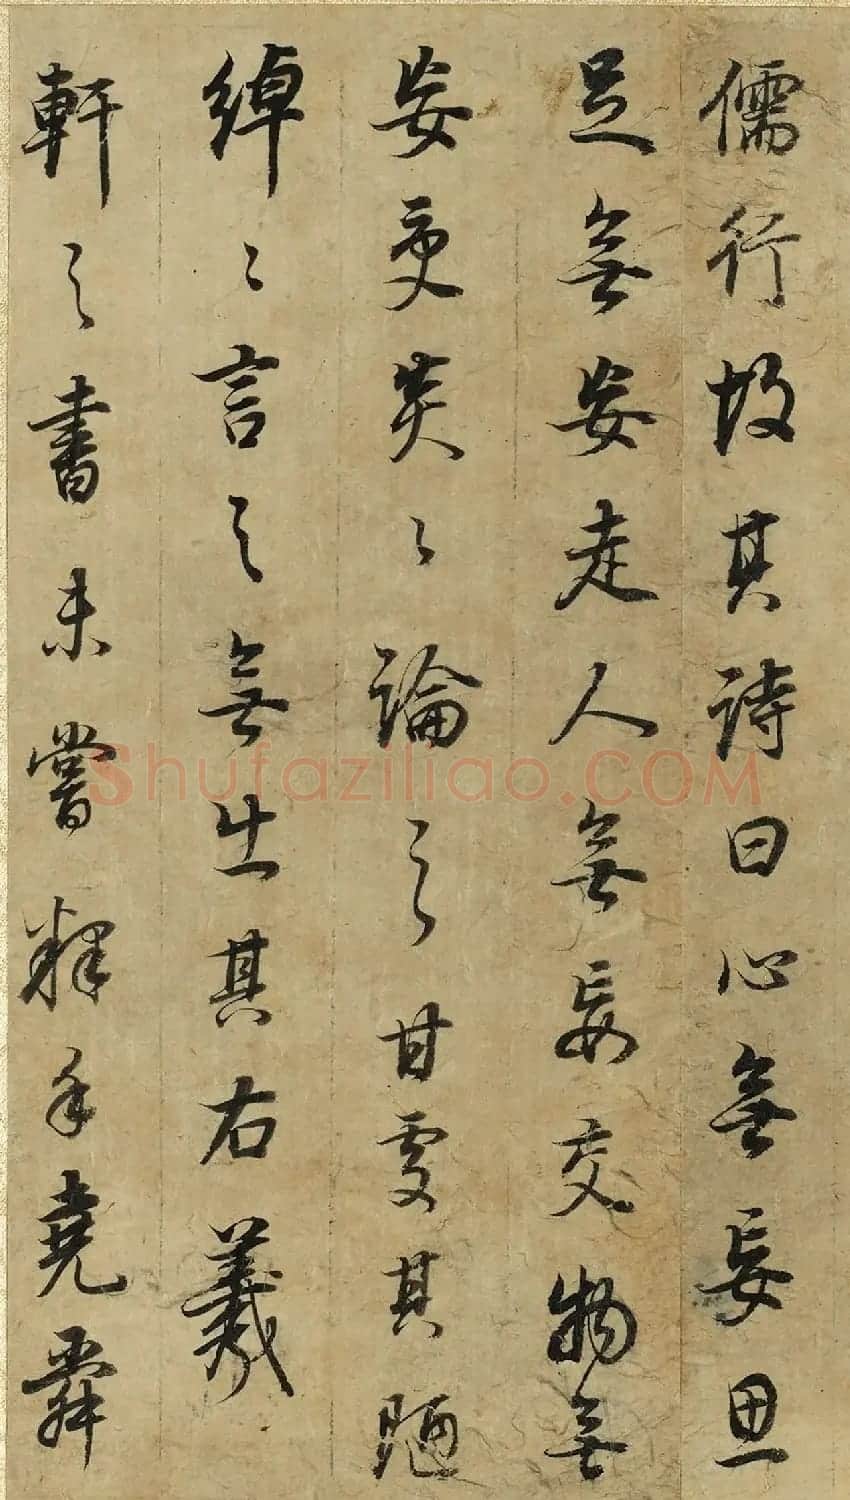 儒行故其詩曰心無妄思
足無妄走人無妄交物無
妄受炎〻論之甘處其陋
綽〻言之無出其右羲
軒之書未嘗釋手堯舜
Shufaziliao.COM